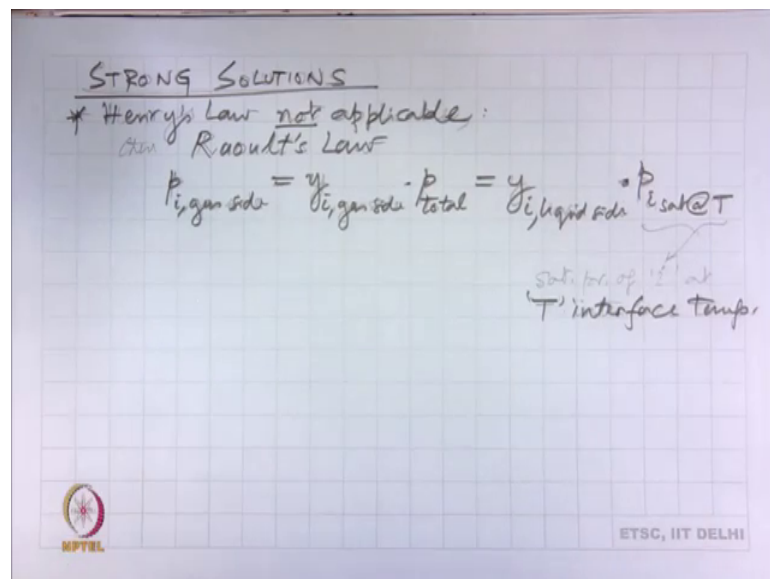 STRONG SOLUTIONS
* Henry's Law not applicable:
then Raoult's Law
p i, gas side = y i, gas side · p total = y i, liquid side · p i sat @ T
sat. pr. of 'i' at
'T' interface Temp.
NPTEL
ETSC, IIT DELHI